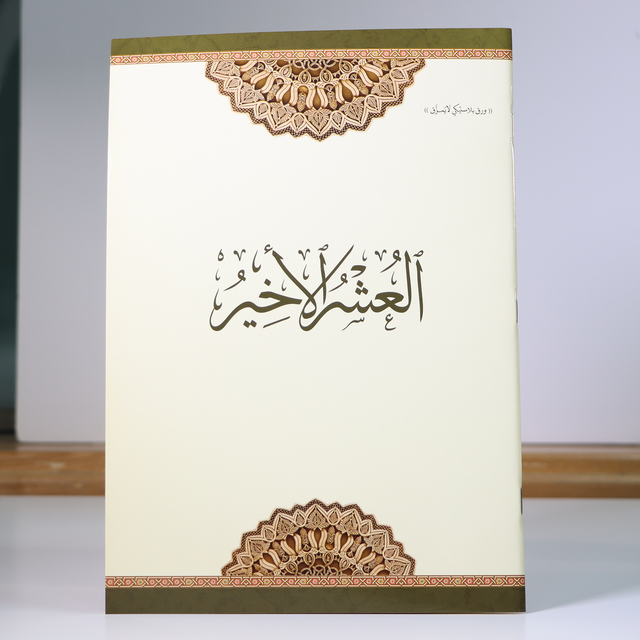 (( ورق بلاستيكي لا يتمزق ))
العُشْرُ الأَخِيرُ